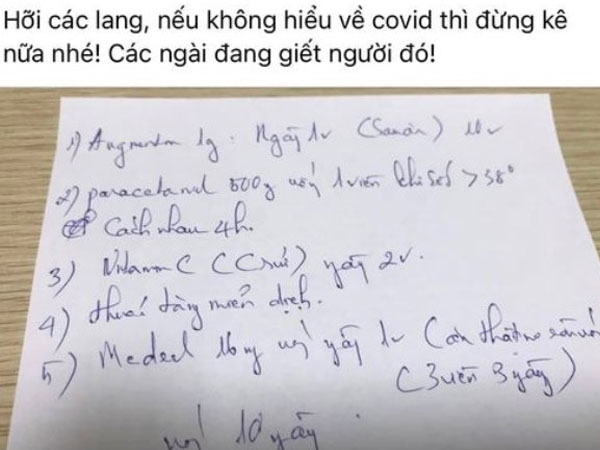 Hỡi các lang, nếu không hiểu về covid thì đừng kê
nữa nhé! Các ngài đang giết người đó!
1) Augmentin 1g . Ngày 1v (Sáng) 10v
2) paracetamol 500g uống 1 viên khi sốt > 38°
Cách nhau 4h.
3) Vitamin C ( C sủi) ngày 2v.
4) thuốc tăng miễn dịch.
5) Medrol 16mg uống ngày 1v
(3 viên 3 ngày)
uống 10 ngày